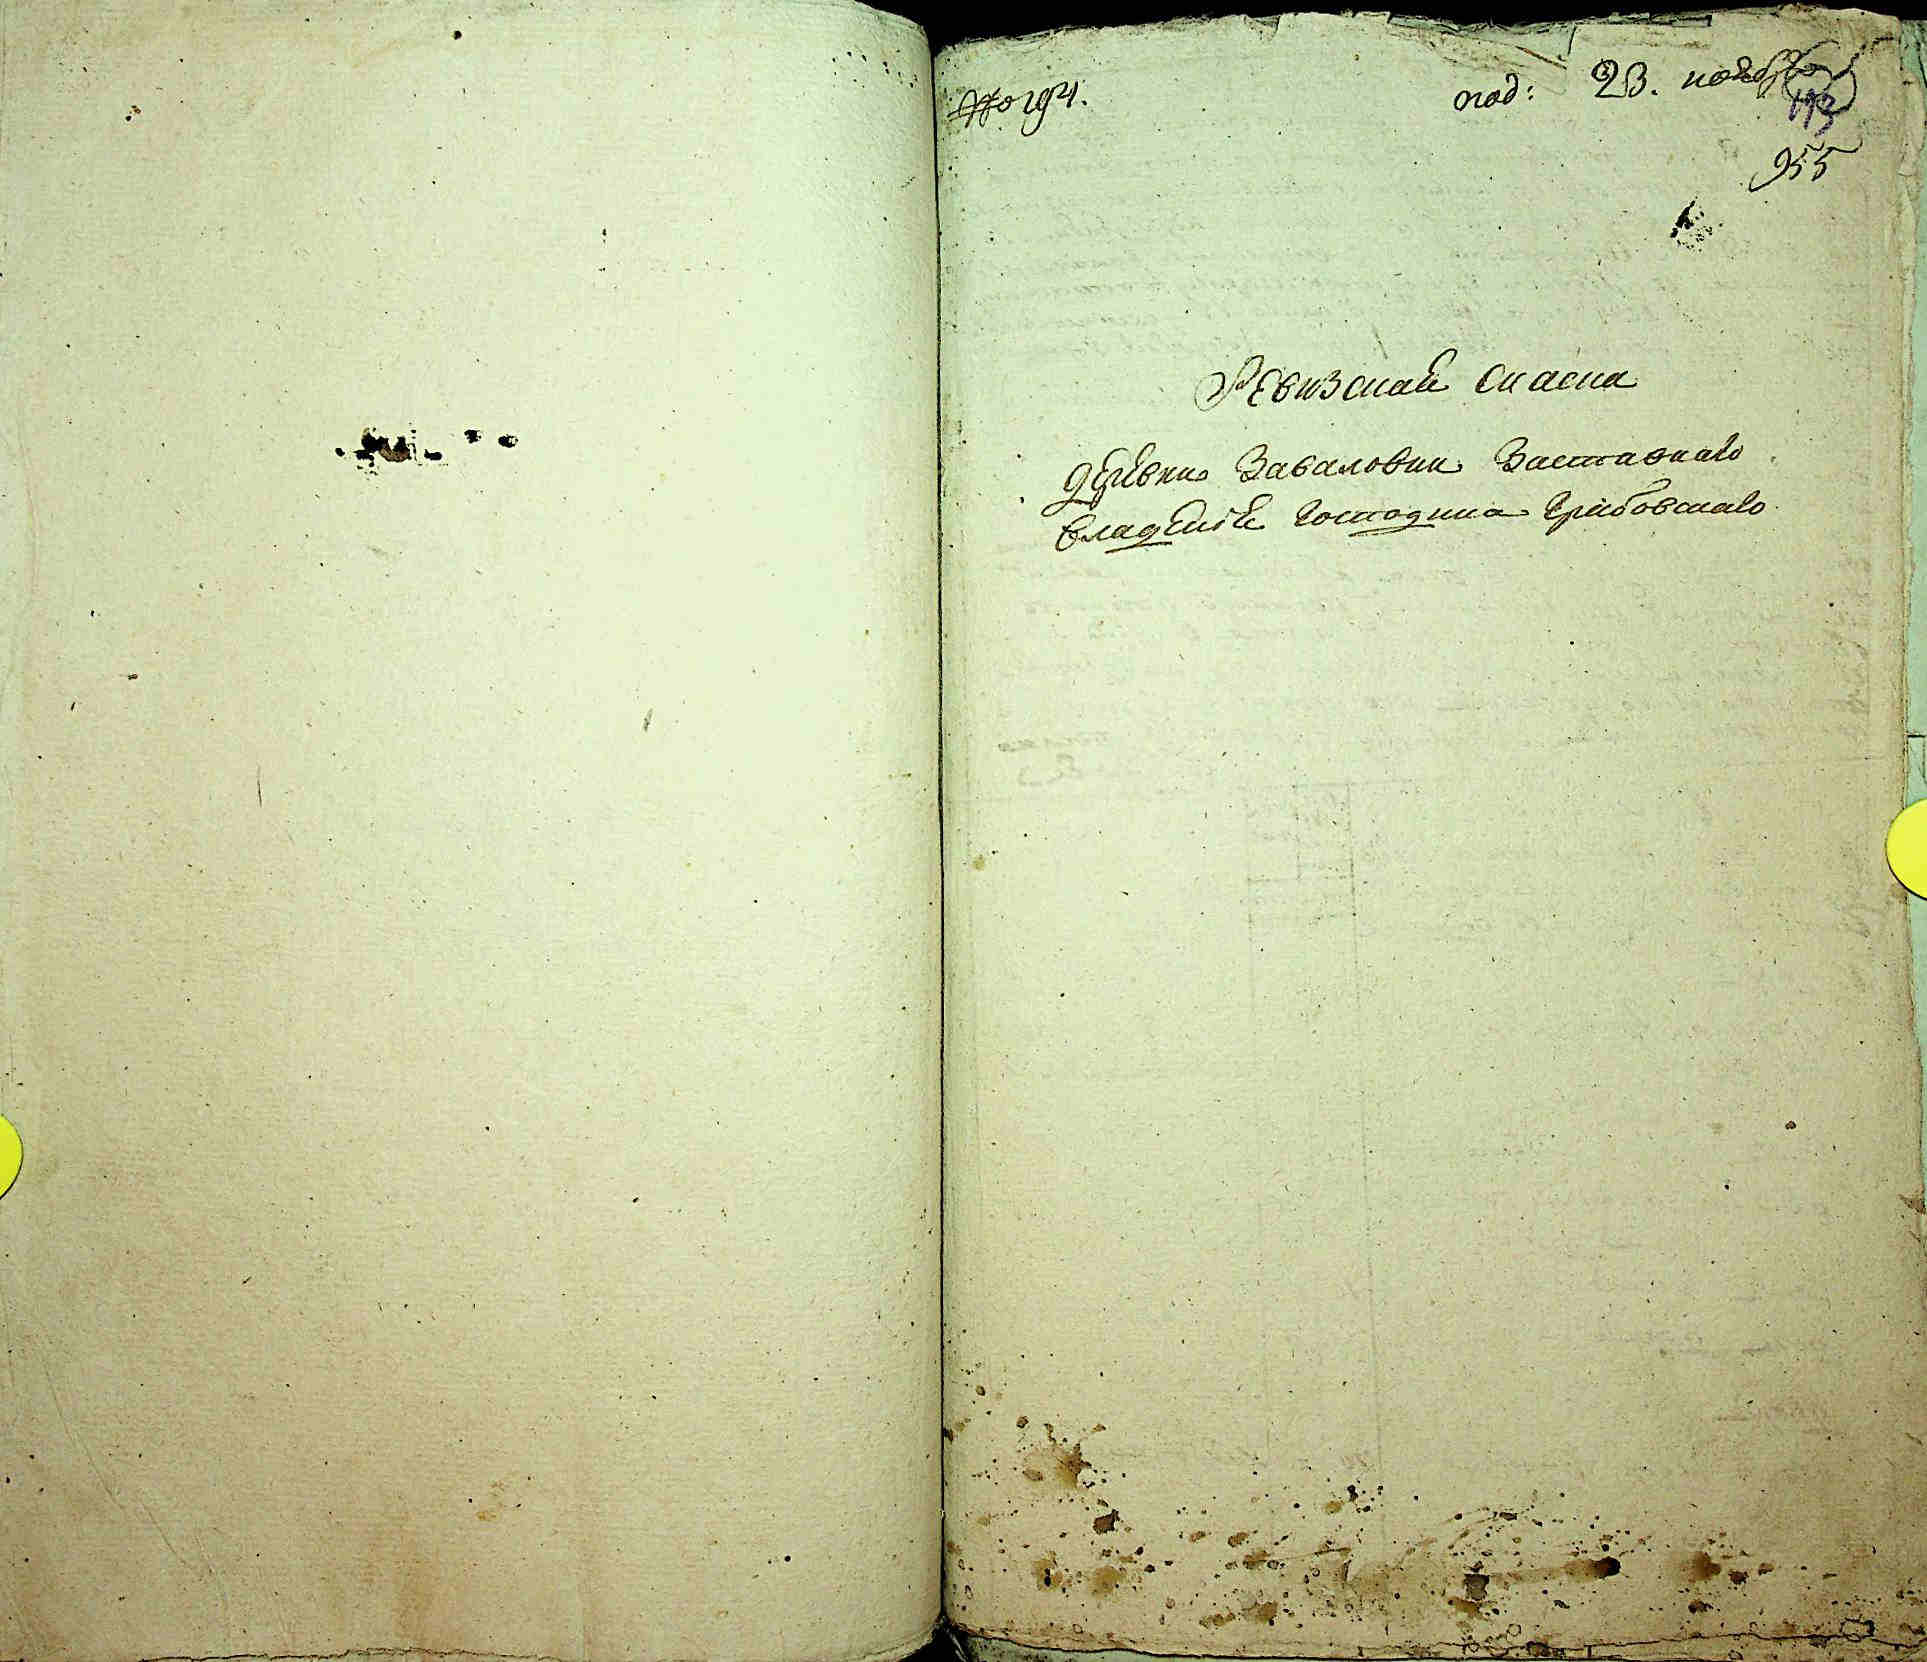 № 194.
под: 23. ноября
113
955
Ревизская Скаска
деревни Заваловки Заставнаго
владения Господина Грабовскаго